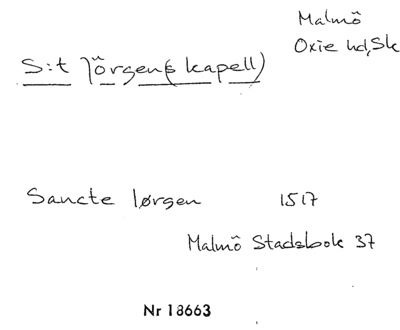 Malmö
Oxie hd, Sk
S:t Jörgen(s kapell)
Sancte Iørgen 1517
Malmö Stadsbok 37
Nr 18663